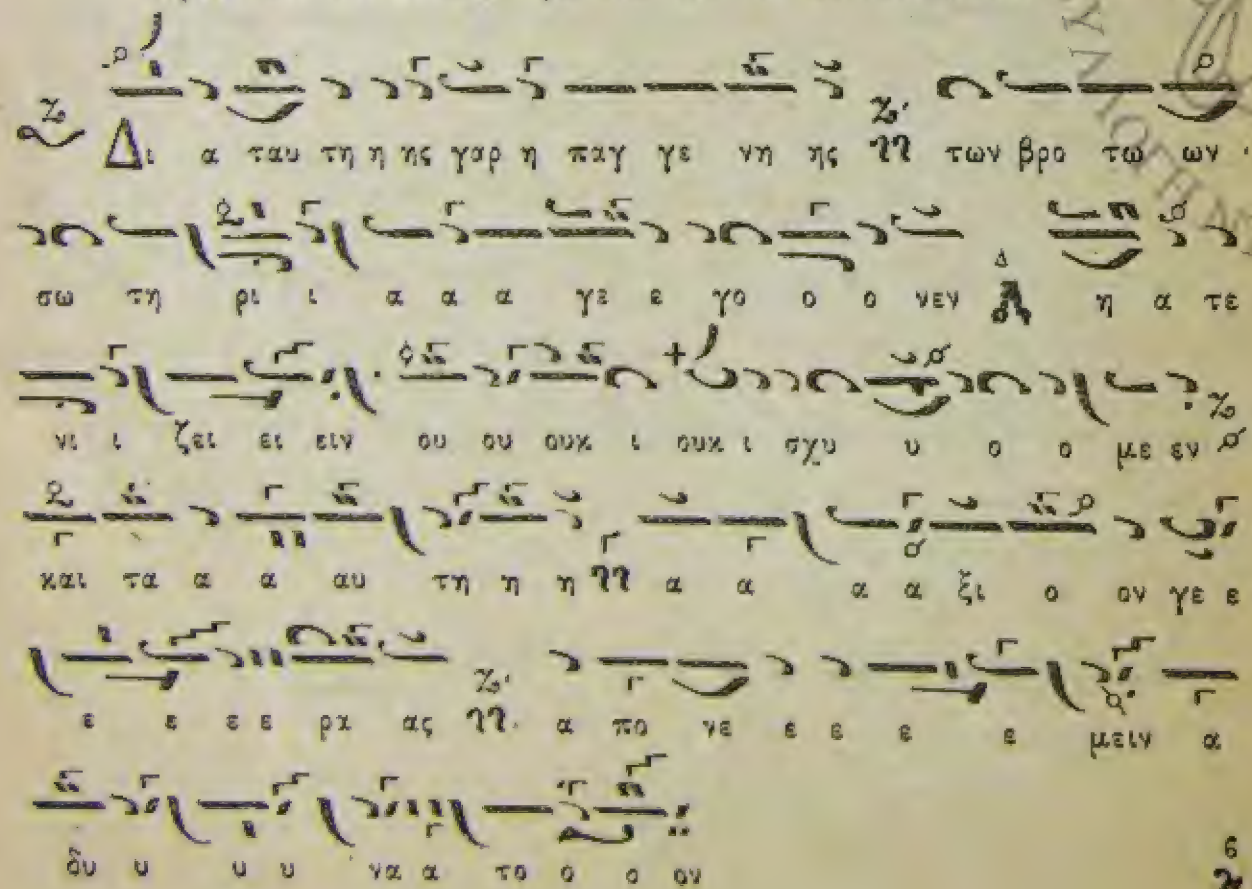 Δι α ταυ τη η ης γαρ η παγ γε νη ης των βρο τω ων
σω τη ρι ι α α α γε ε γο ο ο νεν η α τε
νι ι ζει ει ειν ου ου ουκ ι ουκ ι σχυ υ ο ο με εν
και τα α α αυ τη η η α α α α ξι ο ον γε ε
ε ε ε ε ρα ας α πο νε ε ε ε ε μειν α
δυ υ υ υ να α το ο ο ον